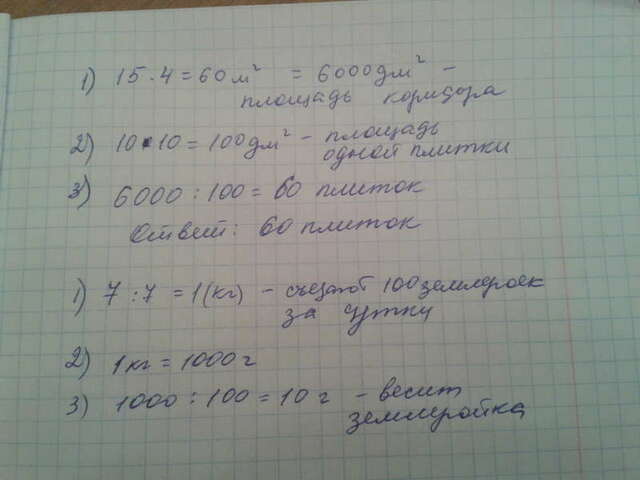 1) 15 · 4 = 60 м² = 6000 дм² –
площадь коридора
2) 10 · 10 = 100 дм² – площадь
одной плитки
3) 6000 : 100 = 60 плиток
Ответ: 60 плиток
1) 7 : 7 = 1 (кг) – съедают 100 землероек
за сутки
2) 1 кг = 1000 г
3) 1000 : 100 = 10 г – весит
землеройка